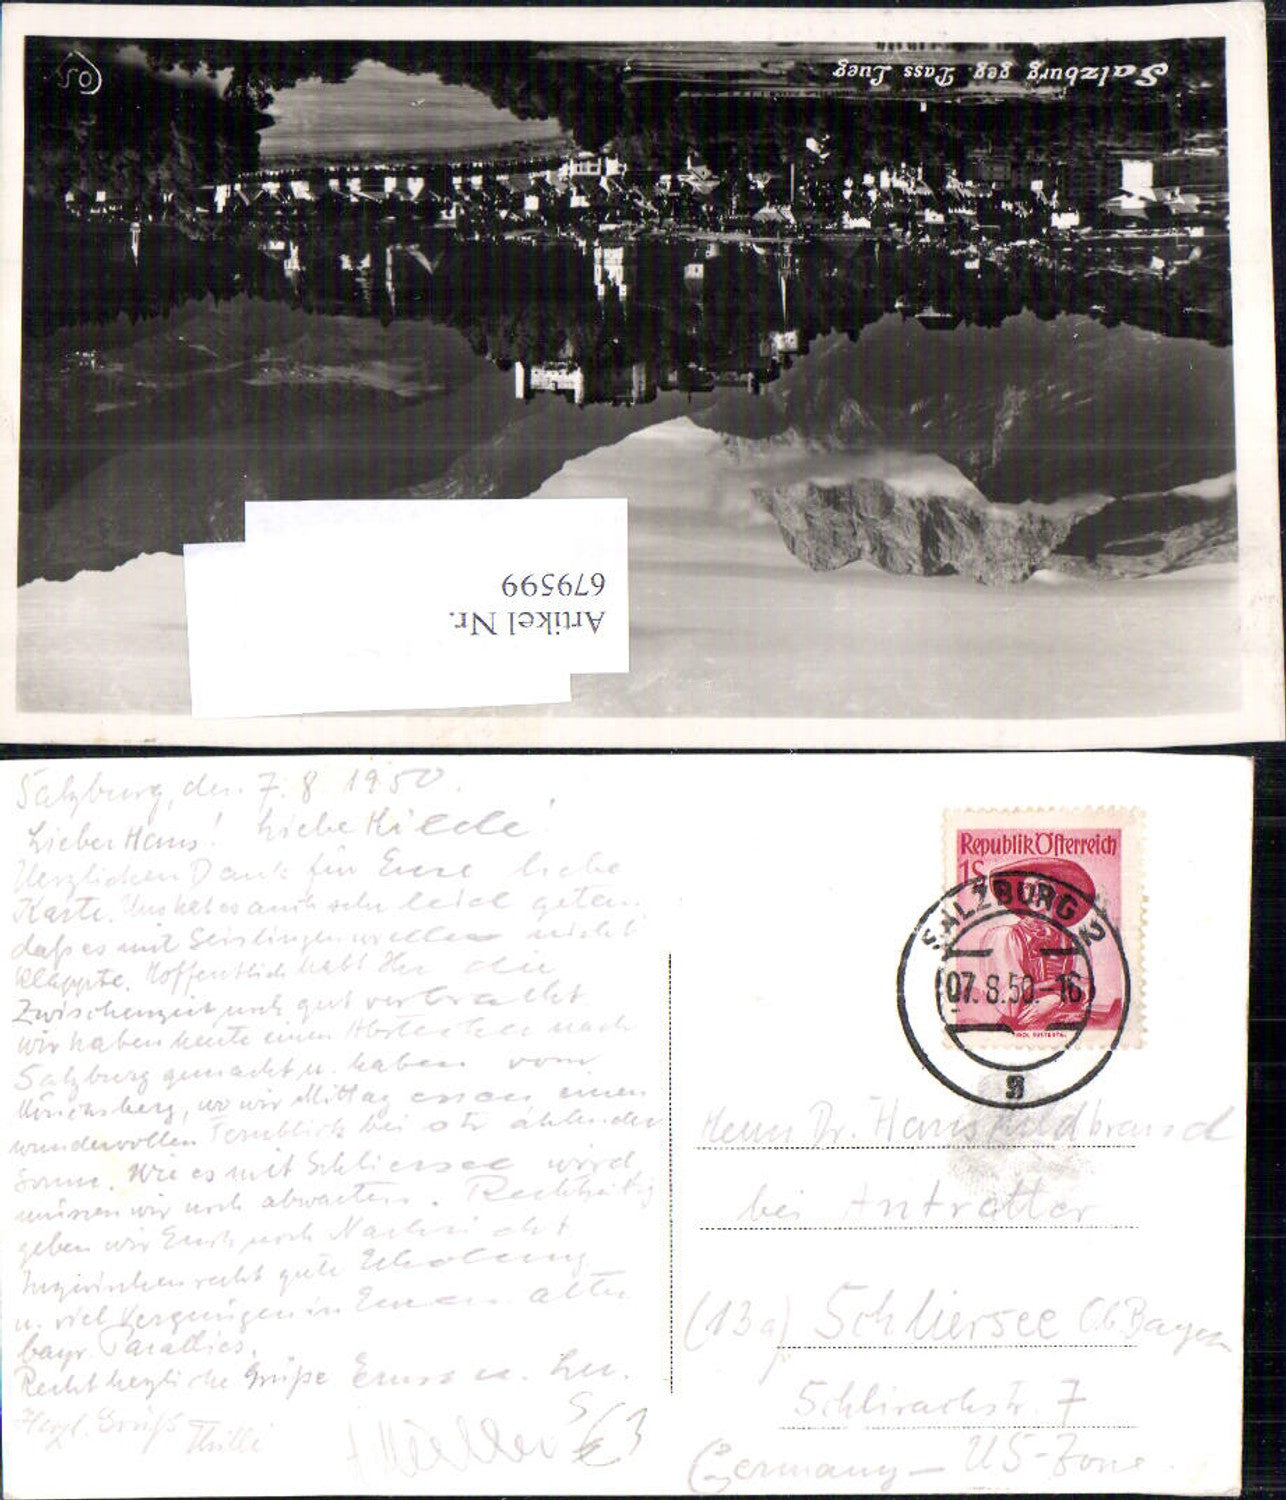 Salzburg geg. Pass Lueg
Artikel Nr.
679599
Salzburg, den 7. 8. 1950.
Lieber Hans! Liebe Hilde!
Herzlichen Dank für Eure liebe
Karte. Uns hat es auch sehr leid getan,
daß es mit Geislingen wellen nicht
klappte. Hoffentlich habt Ihr die
Zwischenzeit noch gut verbracht
wir haben heute einen Abstecher nach
Salzburg gemacht u. haben vom
Mönchsberg, wo wir Mittag essen einen
wundervollen Fernblick bei strahlender
Sonne. Wie es mit Schliersee wird,
müssen wir noch abwarten. Rechtzeitig
geben wir Euch noch Nachricht
Inzwischen recht gute Erholung
u. viel Vergnügen in Eurem alten
bayr. Paradies.
Recht herzliche Grüße
Herzl. Grüß
Republik Österreich
1S
SALZBURG 2
07.8.50-16
g
Herrn Dr. Hans Hildbrand
bei Antretter
(13a) Schliersee Ob. Bayern
Schlierachstr. 7
Germany – US-Zone